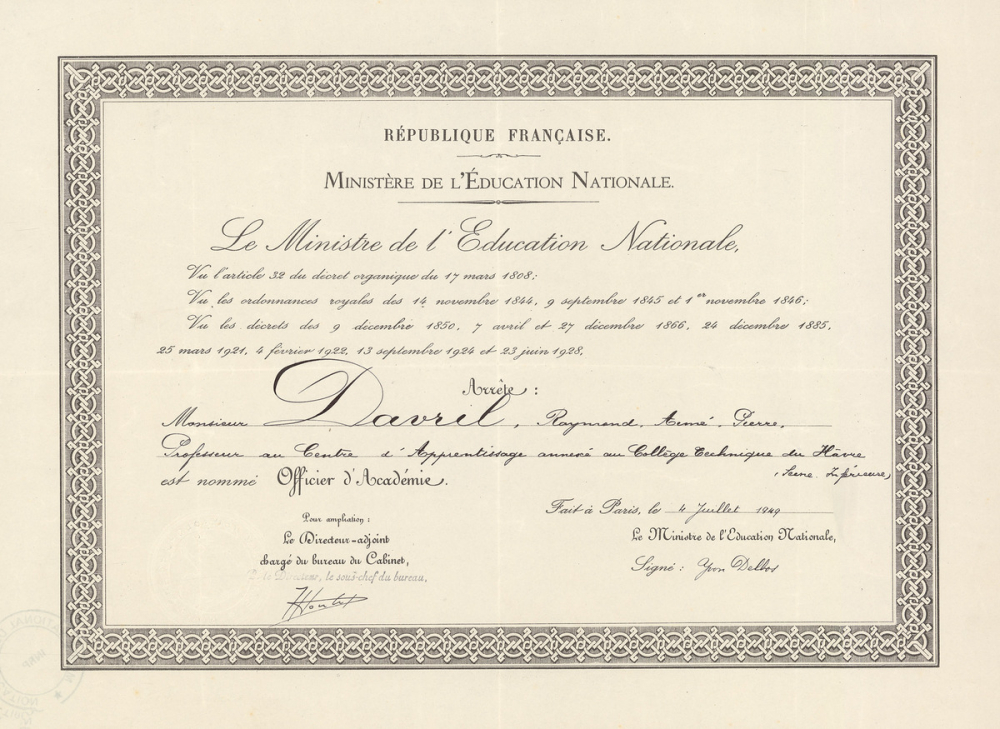 RÉPUBLIQUE FRANÇAISE.
MINISTÈRE DE L'ÉDUCATION NATIONALE.
Le Ministre de l'Education Nationale,
Vu l'article 32 du décret organique du 17 mars 1808;
Vu les ordonnances royales des 14 novembre 1844, 9 septembre 1845 et 1er novembre 1846;
Vu les décrets des 9 décembre 1850, 7 avril et 27 décembre 1866, 24 décembre 1885,
25 mars 1921, 4 février 1922, 13 septembre 1924 et 23 juin 1928,
Arrête :
Monsieur Davril, Raymond, Aimé, Pierre,
Professeur au Centre d'Apprentissage annexé au Collège Technique du Hâvre
(Seine Inférieure)
est nommé Officier d'Académie.
Fait à Paris, le 4 Juillet 1949
Pour ampliation :
Le Directeur-adjoint
chargé du bureau du Cabinet,
le sous-chef du bureau,
Le Ministre de l'Education Nationale,
Signé : Yvon Delbos